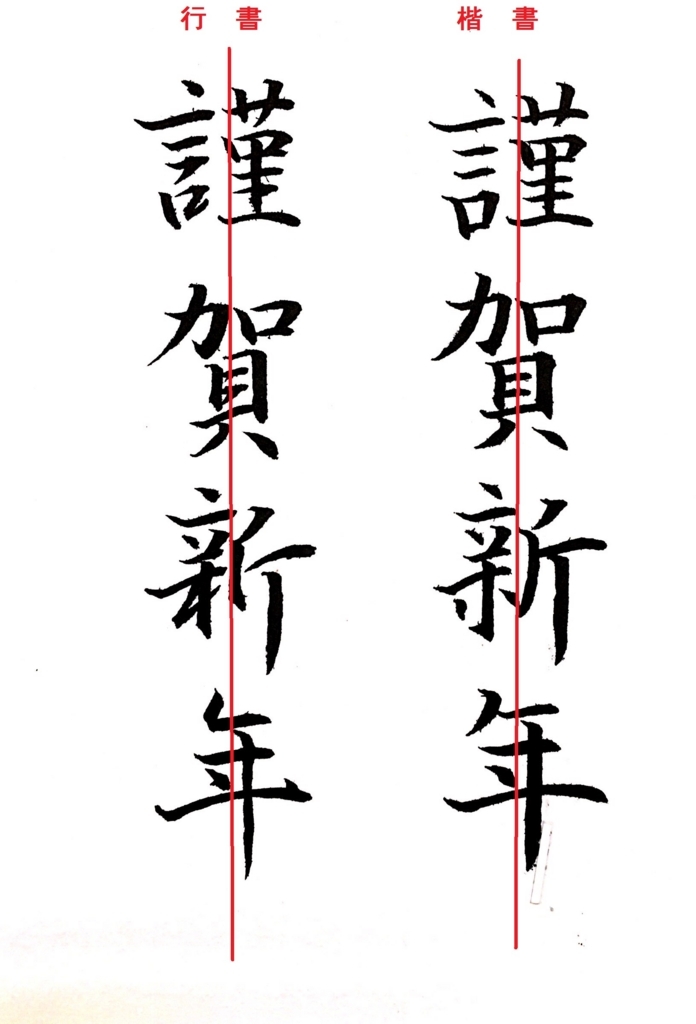 楷書
謹賀新年
行書
謹賀新年